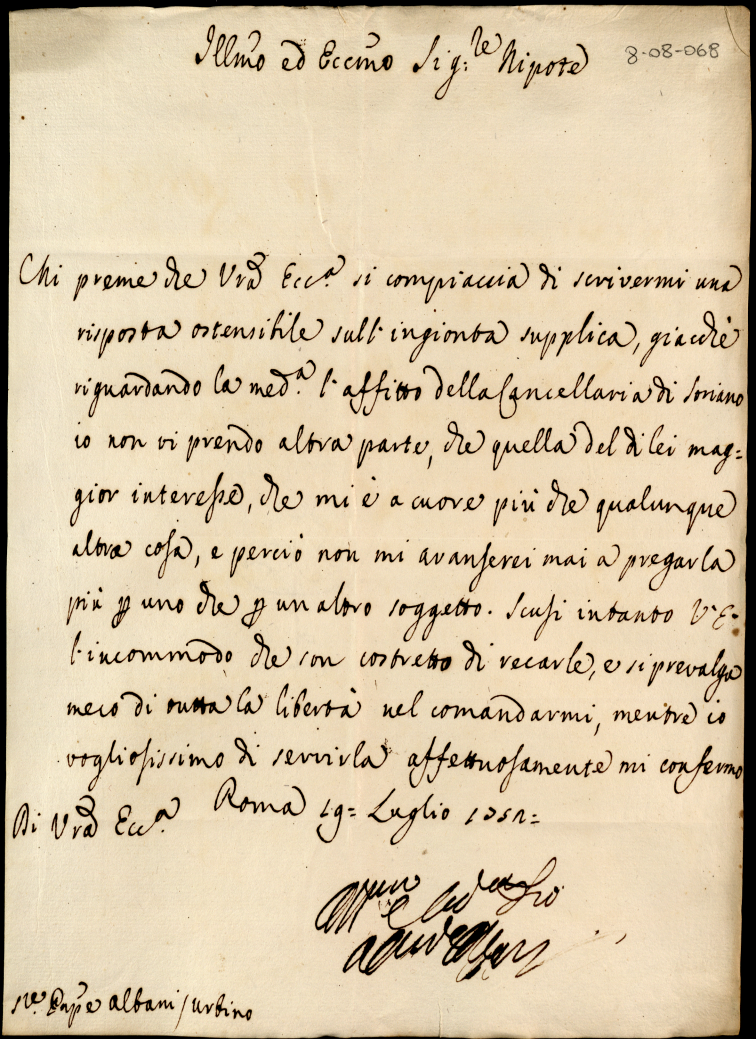 Illmo ed Eccmo Sig:re Nipote
8-08-068
Chi preme che Vra Ecc.a si compiaccia di scrivermi una
risposta ostensibile sull' ingionta supplica, giacchè
riguardando la med.a l' affitto della Cancellaria di Soriano
io non vi prendo altra parte, che quella del di lei mag=
gior interesse, che mi è a cuore più che qualunque
altra cosa, e perciò non mi avanserei mai a pregarla
più p uno che p un altro soggetto. Scusi intanto V. E.
l'incommodo che son costretto di recarle, e si prevalga
meco di tutta la libertà nel comandarmi, mentre io
vogliosissimo di servirla affettuosamente mi confermo
Di Vra Ecc.a Roma 19= Luglio
Zio
Sre Pnpe Albani / Urbino